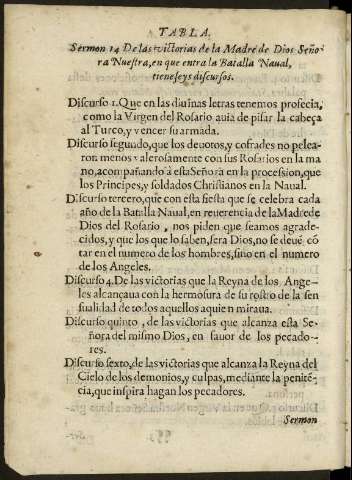 TABLA.
Sermon 14 De las victorias de la Madre de Dios Seño
ra Nuestra, en que entra la Batalla Naual,
tiene seys discursos.
Discurso 1. Que en las diuinas letras tenemos profecia,
como la Virgen del Rosario auia de pisar la cabeça
al Turco, y vencer su armada.
Discurso segundo, que los deuotos, y cofrades no pelea-
ron menos valerosamente con sus Rosarios en la ma
no, acompañando à esta Señora en la procession, que
los Principes, y soldados Christianos en la Naual.
Discurso tercero, que con esta fiesta que se celebra cada
año de la Batalla Naual, en reuerencia de la Madre de
Dios del Rosario, nos piden que seamos agrade-
cidos, y que los que lo saben, sera Dios, no se deue cō
tar en el numero de los hombres, sino en el numero
de los Angeles.
Discurso 4. De las victorias que la Reyna de los Ange-
les alcançaua con la hermosura de su rostro de la sen
sualidad de todos aquellos a quien miraua.
Discurso quinto, de las victorias que alcanza esta Se-
ñora del mismo Dios, en fauor de los pecado-
res.
Discurso sexto, de las victorias que alcanza la Reyna del
Cielo de los demonios, y culpas, mediante la penitē-
cia, que inspira hagan los pecadores.
Sermon